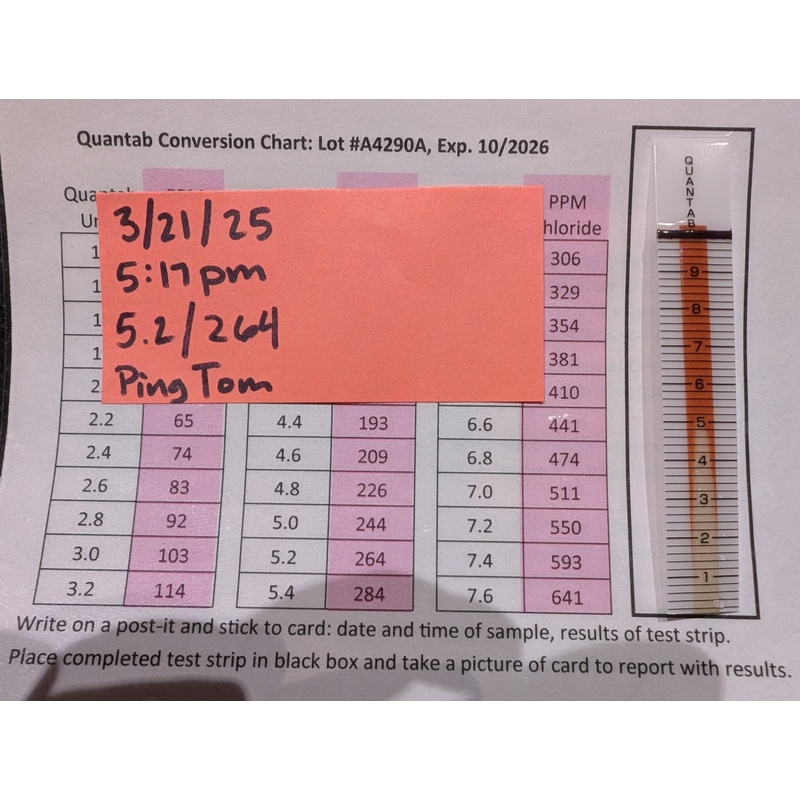 Quantab Conversion Chart: Lot #A4290A, Exp. 10/2026
QUANTAB
PPM
306
329
354
381
410
3/21/25
5:17 pm
5.2/264
Ping Tom
2.2 65 4.4 193 6.6 441
2.4 74 4.6 209 6.8 474
2.6 83 4.8 226 7.0 511
2.8 92 5.0 244 7.2 550
3.0 103 5.2 264 7.4 593
3.2 114 5.4 284 7.6 641
9
8
7
6
5
4
3
2
1
Write on a post-it and stick to card: date and time of sample, results of test strip.
Place completed test strip in black box and take a picture of card to report with results.